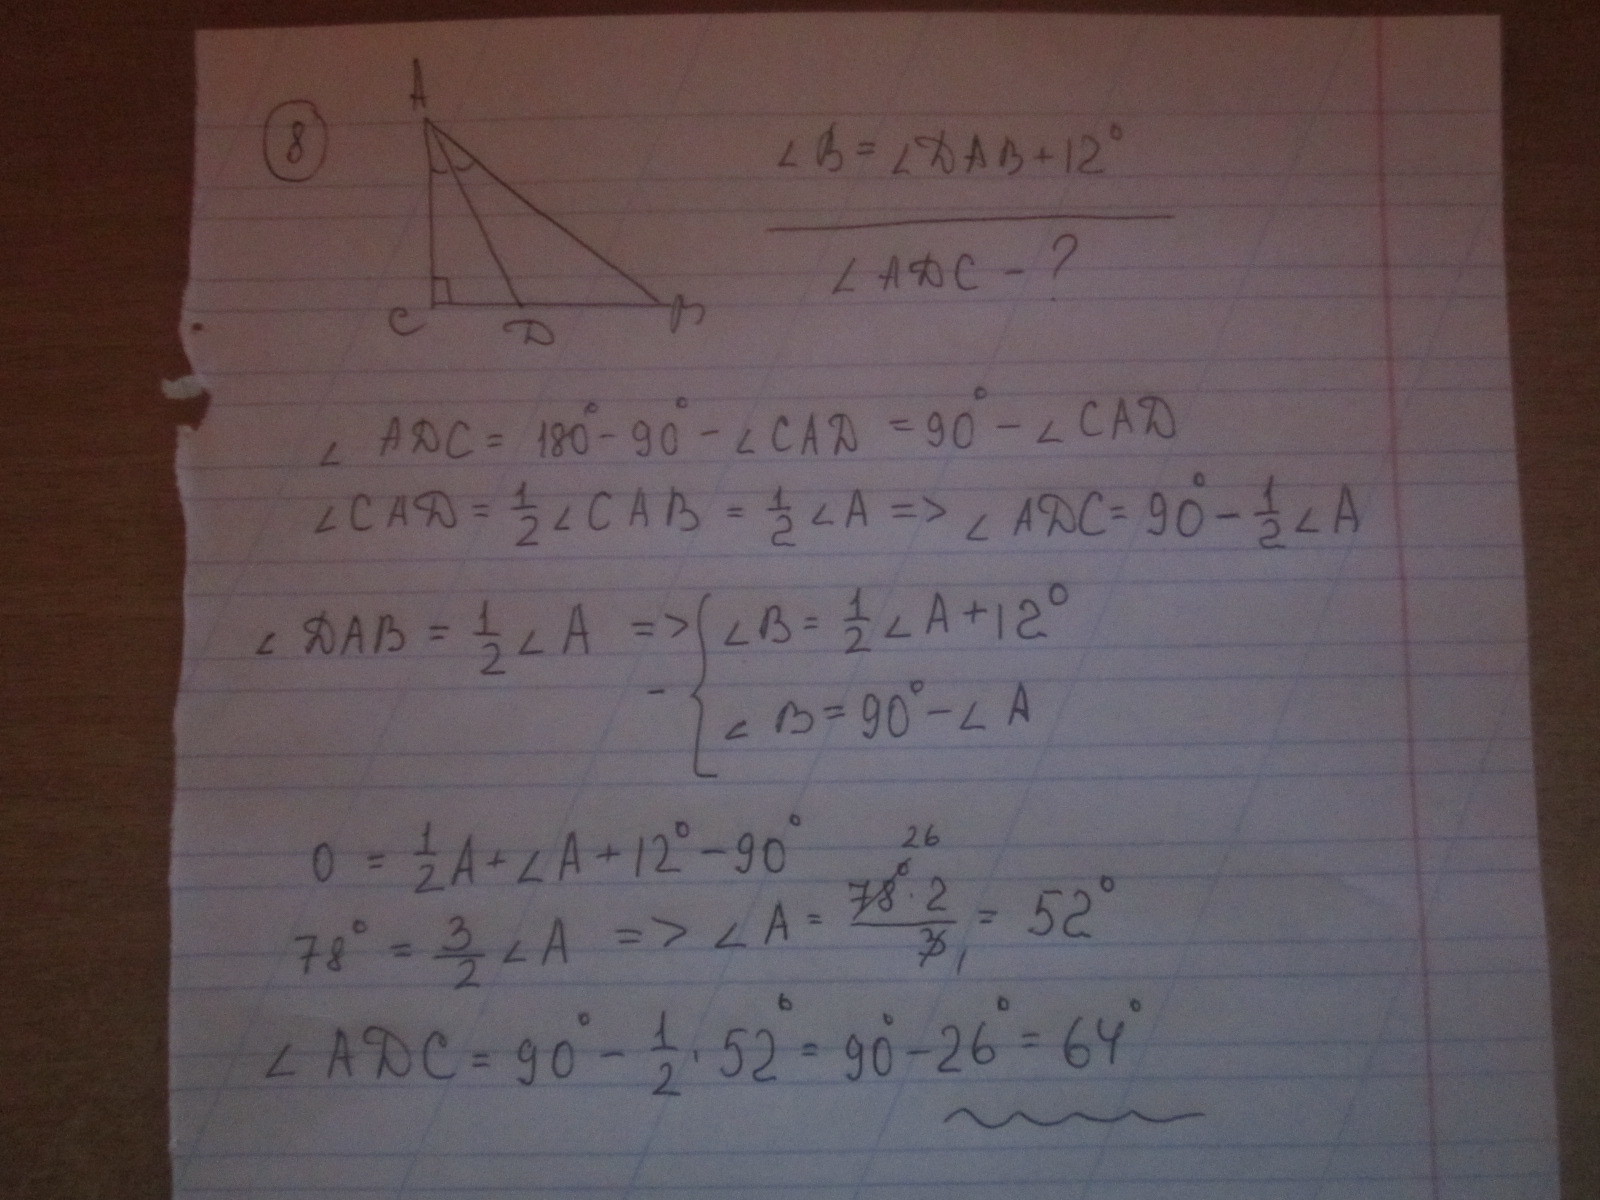 8
A
C
D
B
∠B = ∠DAB + 12°
∠ADC - ?
∠ ADC = 180° - 90° - ∠CAD = 90° - ∠CAD
∠CAD = 1/2 ∠CAB = 1/2 ∠A => ∠ADC = 90° - 1/2 ∠A
∠DAB = 1/2 ∠A => { ∠B = 1/2 ∠A + 12°
- ∠B = 90° - ∠A
0 = 1/2 A + ∠A + 12° - 90°
26
78° = 3/2 ∠A => ∠A = 78° · 2 / 3 1 = 52°
∠ADC = 90° - 1/2 · 52° = 90° - 26° = 64°